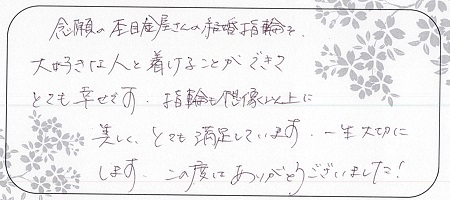 念願の杢目金屋さんの結婚指輪を、
大好きな人と着けることができて
とても幸せです。指輪も想像以上に
美しく、とても満足しています。一生大切に
します。この度はありがとうございました!